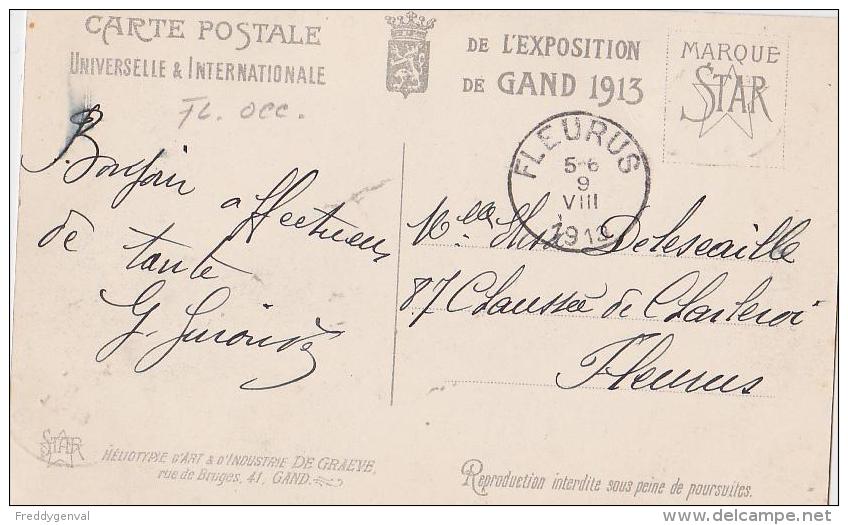 CARTE POSTALE
UNIVERSELLE & INTERNATIONALE
DE L'EXPOSITION
DE GAND 1913
MARQUE
STAR
FL. OCC.
FLEURUS
5-6
9
VIII
1913
Bonjour affectueux
de tante
G.
Mlle Delescaille
87 Chaussée de Charleroi
Fleurus
STAR
HÉLIOTYPIE D'ART & D'INDUSTRIE DE GRAEVE,
rue de Bruges, 41, GAND.
Reproduction interdite sous peine de poursuites.
Freddygenval
delcampe.net